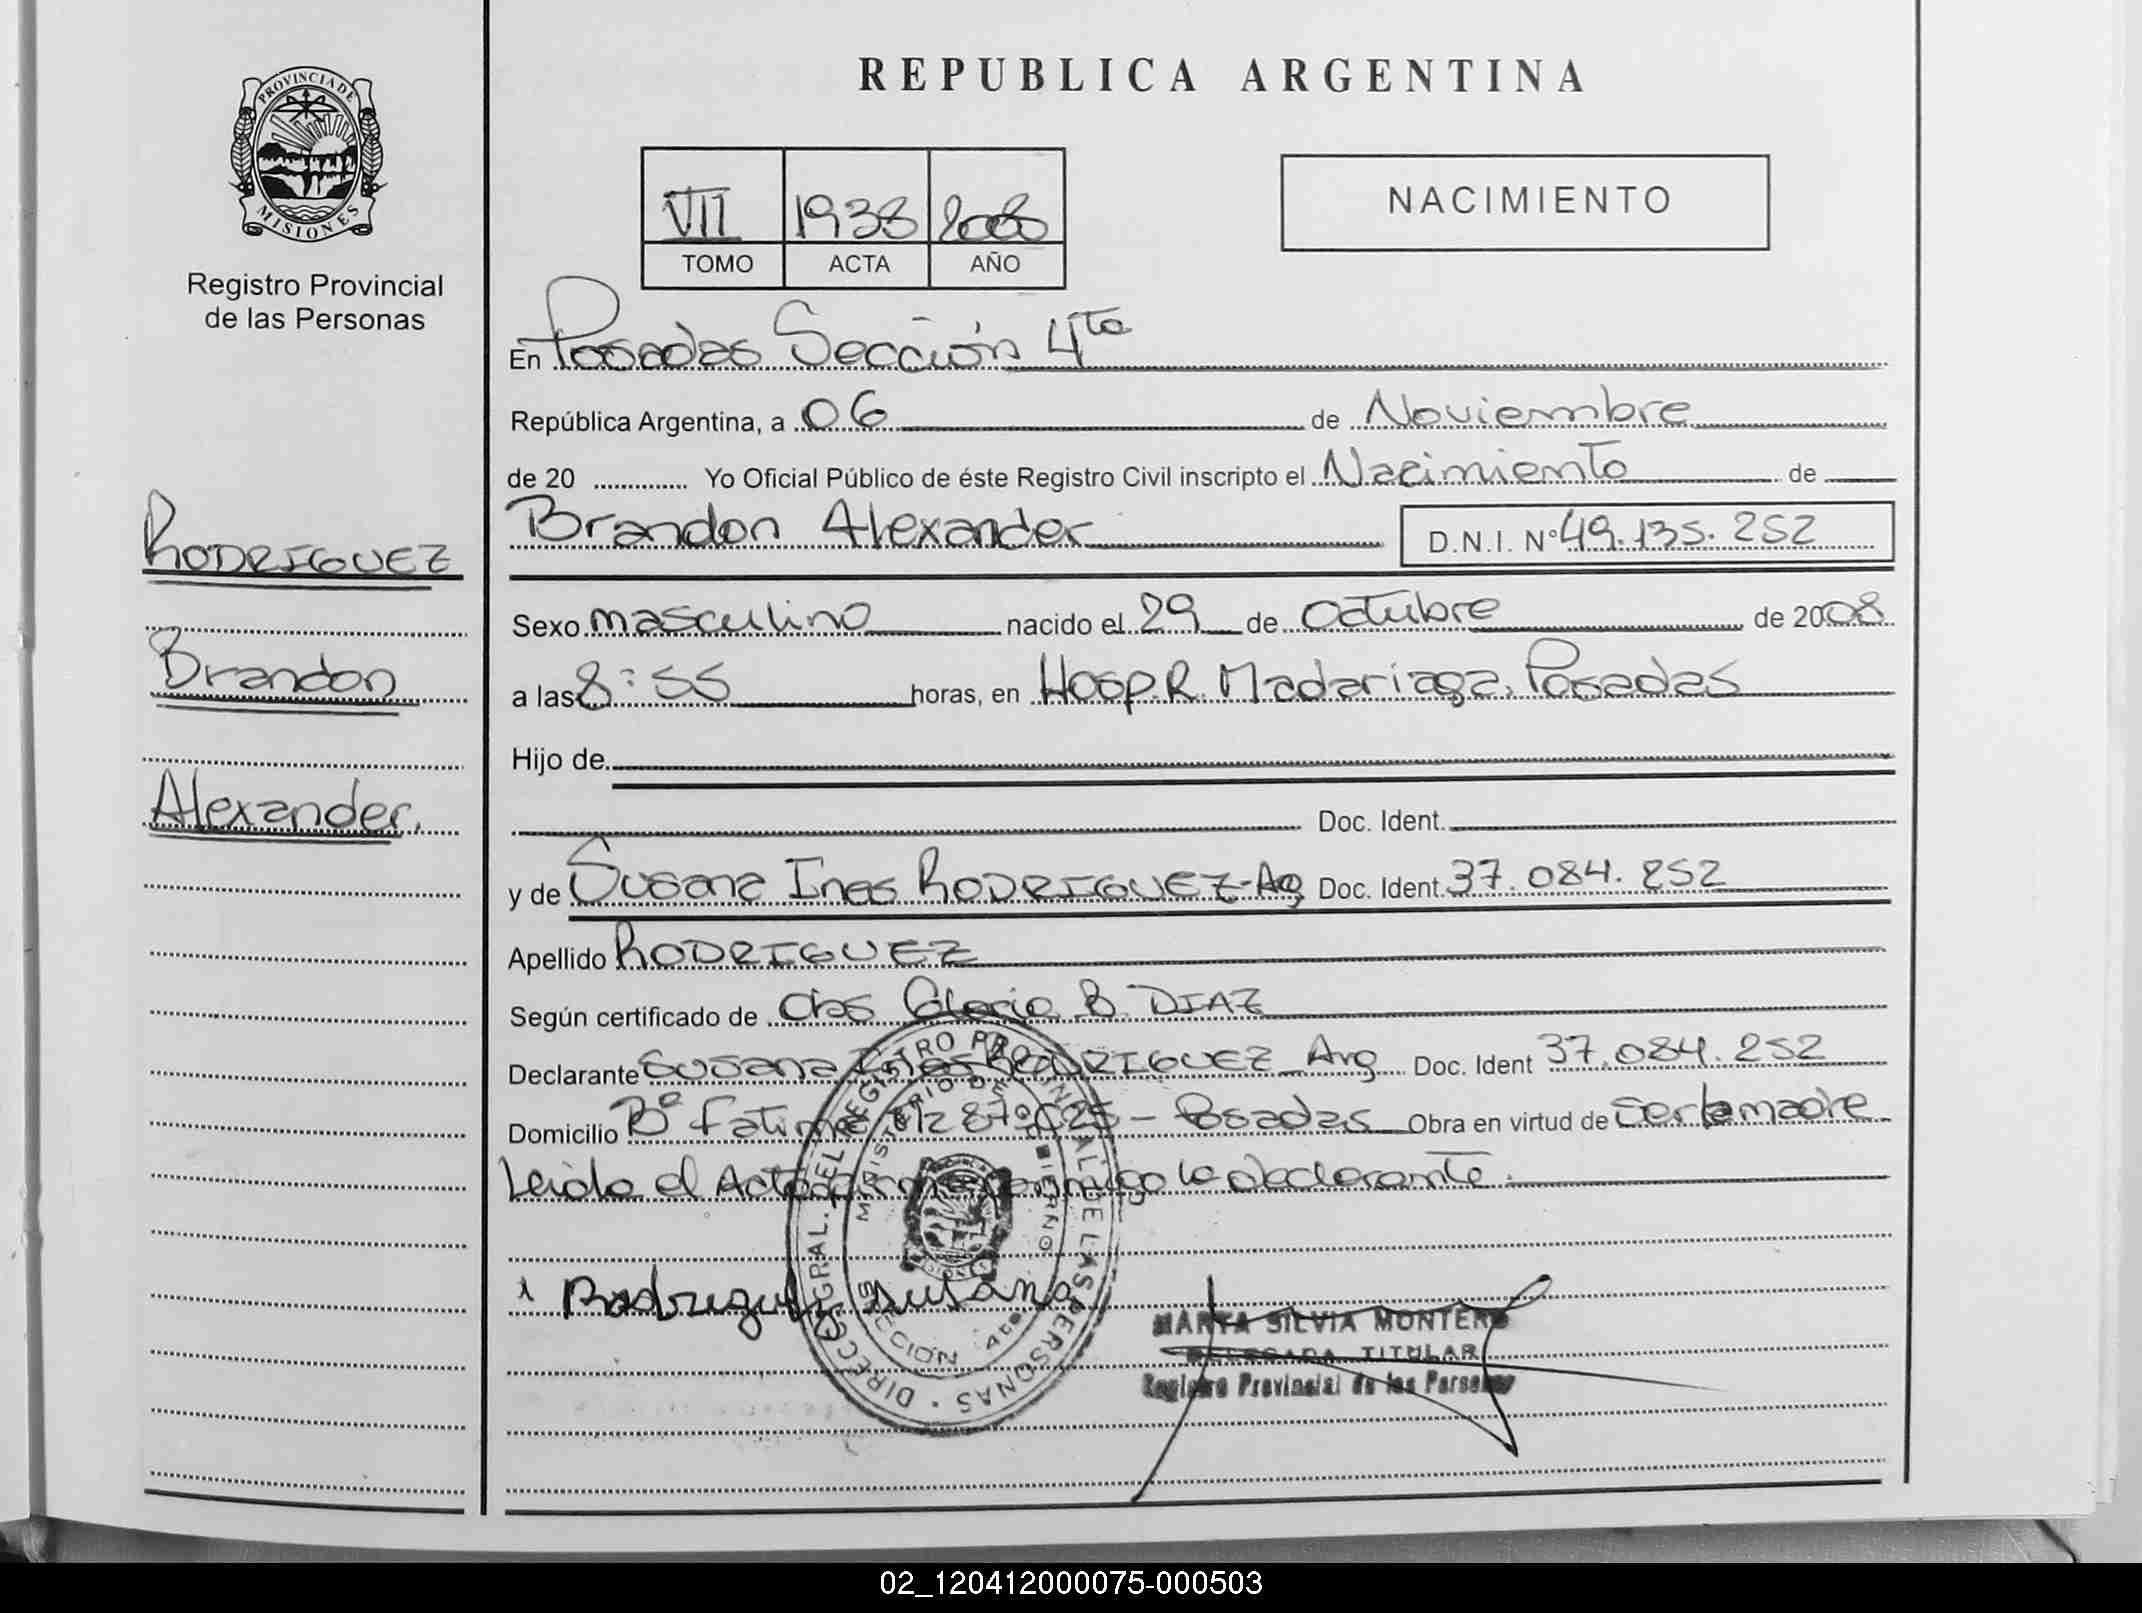 REPUBLICA ARGENTINA
PROVINCIA DE MISIONES
Registro Provincial
de las Personas
VII 1938 2008
TOMO ACTA AÑO
NACIMIENTO
En Posadas Sección 4ta
República Argentina, a 06 de Noviembre
de 20 ............. Yo Oficial Público de éste Registro Civil inscripto el Nacimiento de
Brandon Alexander D.N.I. N° 49.135.252
RODRIGUEZ
Brandon
Alexander.
Sexo masculino nacido el 29 de Octubre de 2008
a las 8:55 horas, en Hosp. R. Madariaga. Posadas
Hijo de
Doc. Ident.
y de Susana Ines RODRIGUEZ - Ag Doc. Ident. 37.084.252
Apellido RODRIGUEZ
Según certificado de Obs Gloria B. DIAZ
Declarante Susana Ines RODRIGUEZ Arg Doc. Ident 37.084.252
Domicilio B° Fatima Mz 87 C25 - Posadas Obra en virtud de ser la madre
Leido el Acta firma conmigo la declarante.
Rodriguez Susana
DIRECC. GRAL. DEL REGISTRO PROVINCIAL DE LAS PERSONAS
MINISTERIO DE GOBIERNO
SECCIÓN 4ta
MARTA SILVIA MONTERO
DELEGADA TITULAR
Registro Provincial de las Personas
02_120412000075-000503